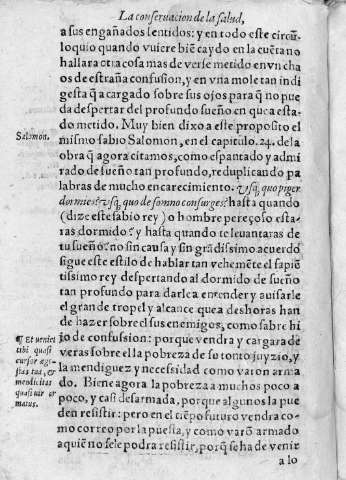 La conseruacion de la salud,
a sus engañados sentidos: y en todo este circũ-
loquio quando vuiere biẽ caydo en la cuẽta no
hallara otra cosa mas de verse metido en vn cha
os de estraña confusion, y en vna mole tan indi
gesta q̃ a cargado sobre sus ojos para q̃ no pue
da despertar del profundo sueño en que a esta-
do metido. Muy bien dixo a este proposito el
Salomon.
mismo sabio Salomon, en el capitulo. 24. de la
obra q̃ agora citamos, como espantado y admi
rado de sueño tan profundo, reduplicando pa
labras de mucho encarecimento. Vsq; quo piger
dormies? vsq; quo de somno consurges? hasta quando
(dize este sabio rey) o hombre pereçoso esta-
ras dormido? y hasta quando te leuantaras de
tu sueño? no sin causa y sin grãdissimo acuerdo
sigue este estilo de hablar tan vehemẽte el sapiẽ
tissimo rey despertando al dormido de sueño
tan profundo para darle a entender y auisarle
el gran de tropel y alcance que a deshoras han
de hazer sobre el sus enemigos, como sabre hi
¶ Et veniet
tibi quasi
cursor ege-
stas tua, &
mendicitas
quasi vir ar
matus.
jo de confussion: porque vendra y cargara de
veras sobre el la pobreza de su tonto juyzio, y
la mendiguez y necessidad como varon arma
do. Bien agora la pobreza a muchos poco a
poco, y casi desarmada, porque algunos la pue
den resistir: pero en el tiẽpo futuro vendra co-
mo correo por la puesta, y como varõ armado
a quiẽ no se le podra resistir, porq̃ se ha de venir
a lo